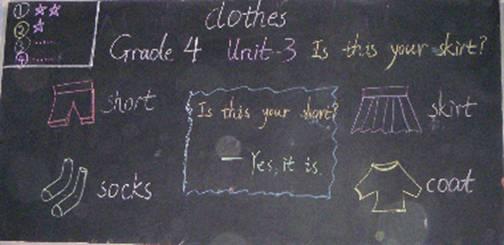 clothes
① ☆☆
② ☆
③ ......
④ ......
Grade 4 Unit-3 Is this your skirt?
short
Is this your short?
— Yes, it is.
skirt
socks
coat